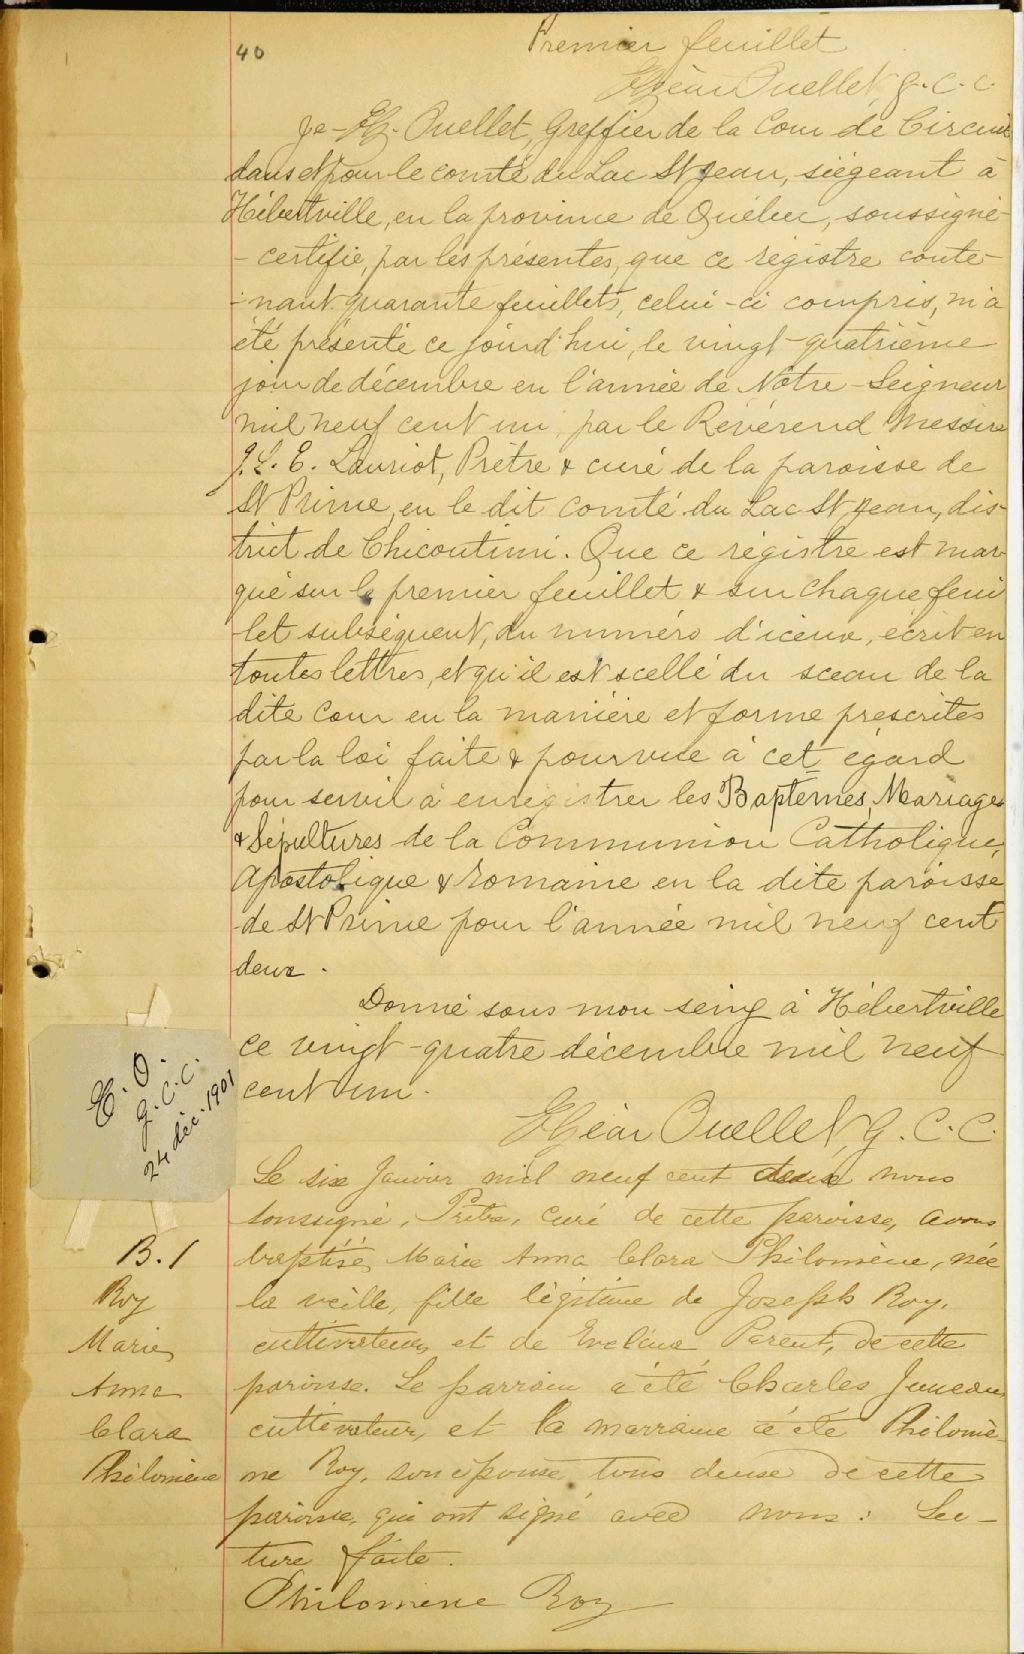 40
Premier feuillet
Elzéar Ouellet, g. C. C.
Je Elz. Ouellet, Greffier de la Cour de Circuit
dans et pour le comté du Lac St Jean, siégeant à
Hébertville, en la province de Québec, soussigné
- certifie, par les présentes, que ce régistre conte-
- nant quarante feuillets, celui-ci compris, m'a
été présenté ce jourd'hui, le vingt-quatrième
jour de décembre en l'année de Notre-Seigneur
mil neuf cent un, par le Révérend Messire
J. L. E. Lauriot, Prêtre & curé de la paroisse de
St Prime, en le dit comté du Lac St Jean, dis-
trict de Chicoutimi. Que ce régistre est mar-
qué sur le premier feuillet & sur chaque feuil
let subséquent, du numéro d'iceux, écrit en
toutes lettres, et qu'il est scellé du sceau de la
dite cour en la manière et forme prescrites
par la loi faite & pourvue à cet égard
pour servir à enrégistrer les Baptêmes, Mariages
& Sépultures de la Communion Catholique,
Apostolique & Romaine en la dite paroisse
de St Prime pour l'année mil neuf cent
deux.
Donné sous mon seing à Hébertville
ce vingt-quatre décembre mil neuf
cent un.
Elzéar Ouellet, g. C. C.
E. O.
g. C. C.
24 déc. 1901
Le six Janvier mil neuf cent deux nous
soussigné, Prêtre, curé de cette paroisse, avons
B. 1
baptisé, Marie Anna Clara Philomène, née
Roy
la veille, fille légitime de Joseph Roy,
Marie
cultivateur, et de Evelina Parent, de cette
Anna
paroisse. Le parrain a été Charles Juneau
Clara
cultivateur, et la marraine a été Philomè-
Philomène
ne Roy, son épouse, tous deux de cette
paroisse, qui ont signé avec nous : Lec-
ture faite.
Philomene Roy